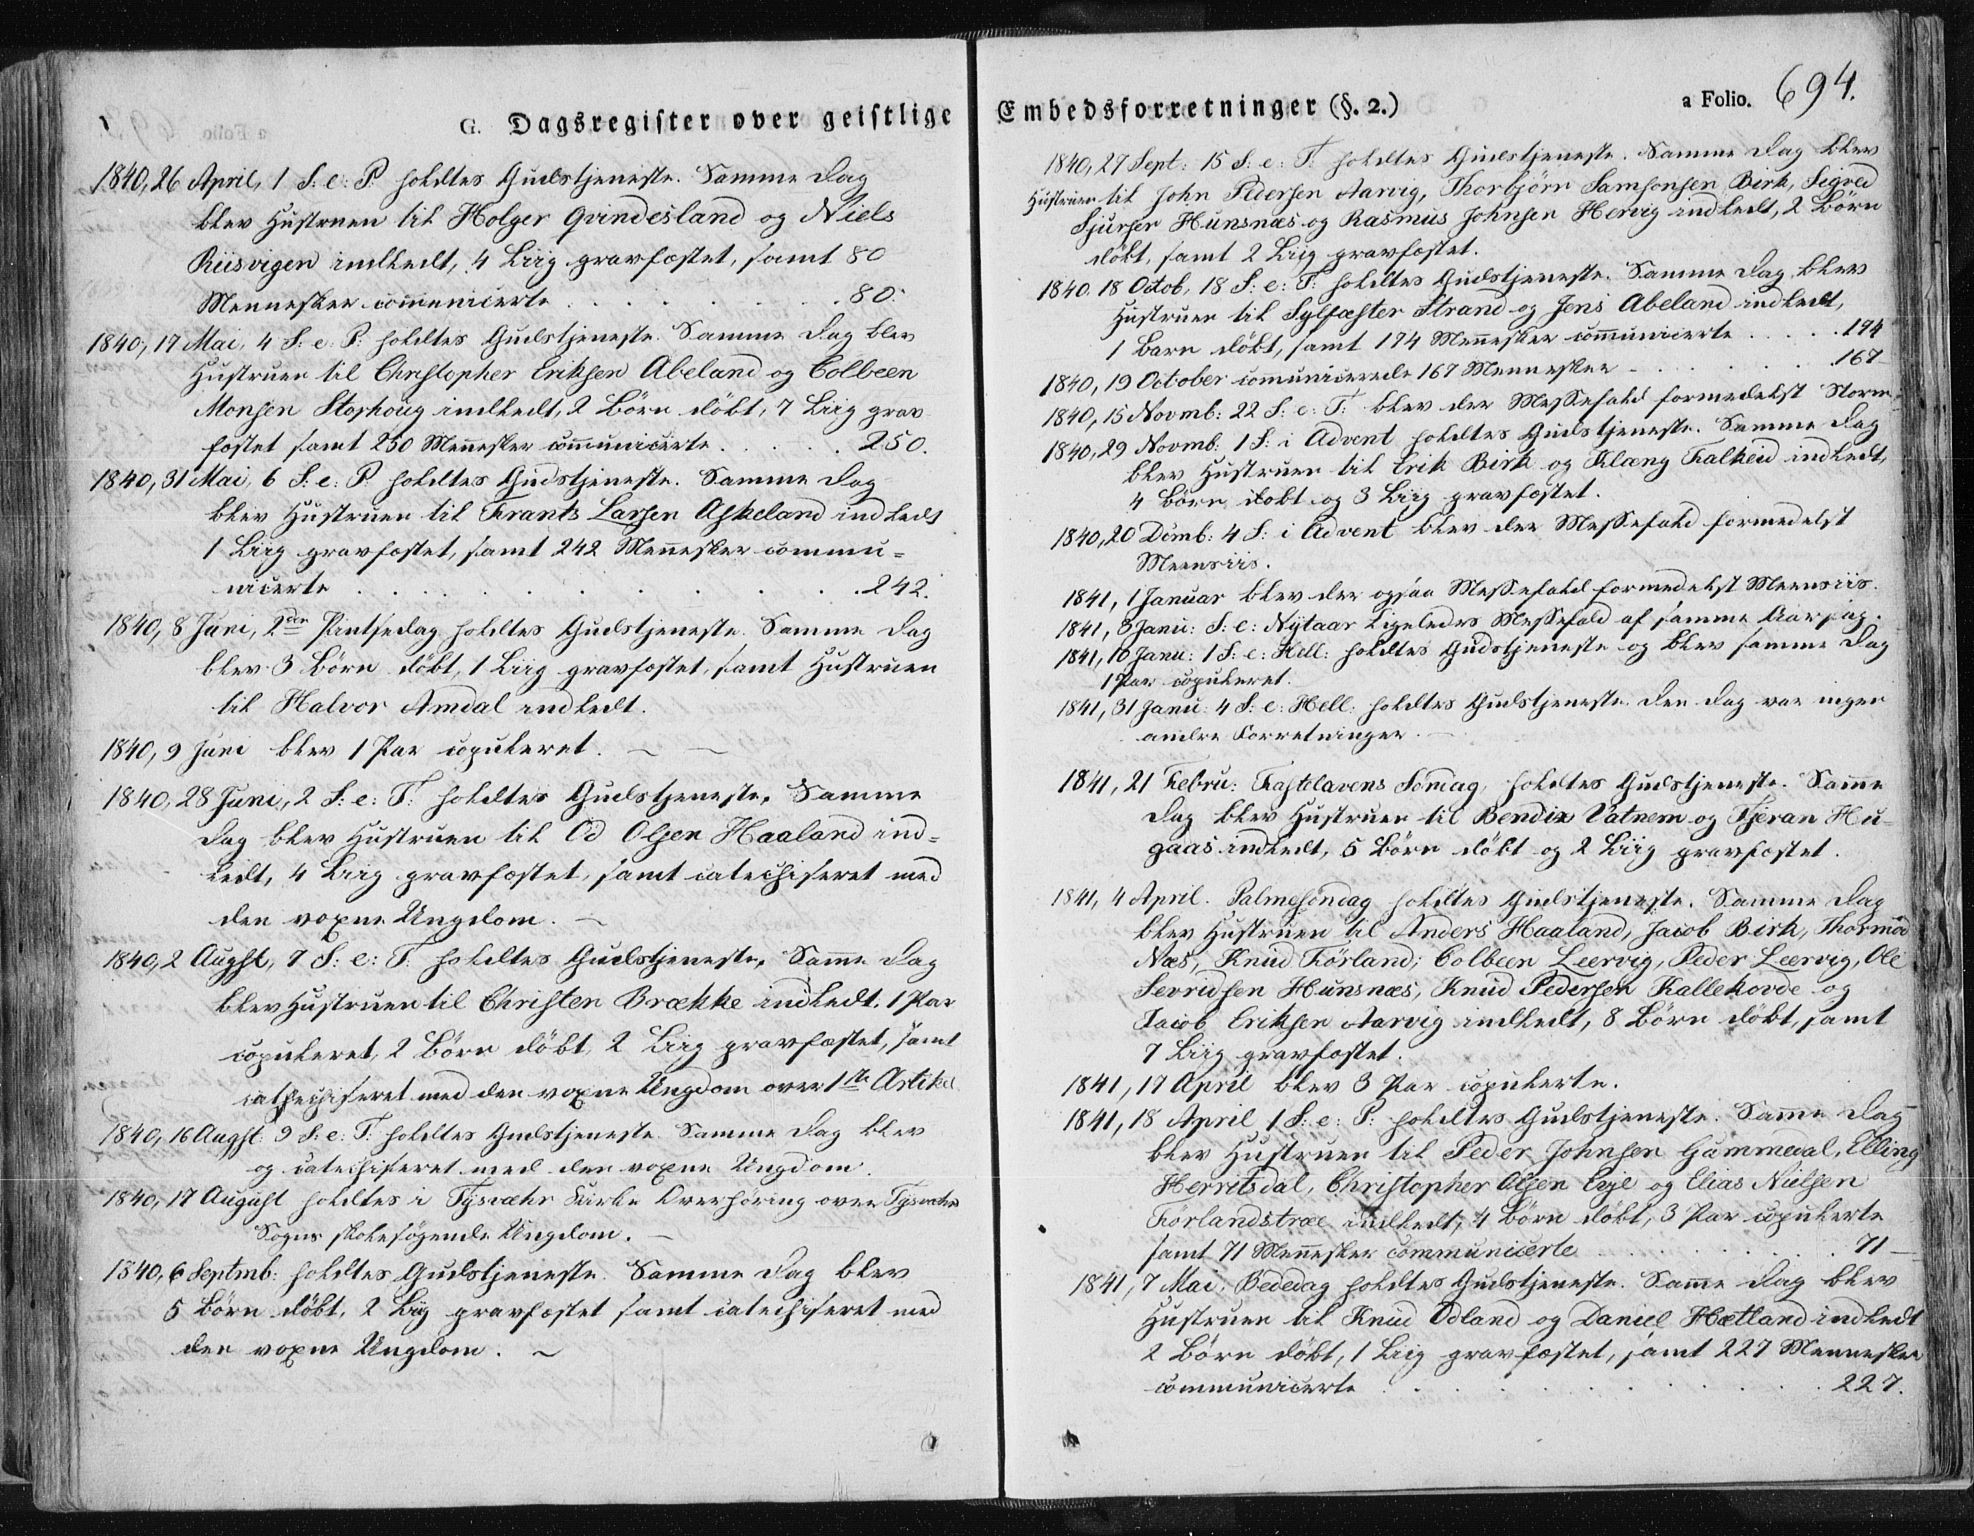 G. Dagsregister over geistlige
1840, 26 April, 1 S: e: P: holdtes Gudstjeneste. Samme Dag
blev Hustruen til Holger Qvindesland og Niels
Riisvigen indledt, 4 Liig gravfæstet, samt 80
Mennesker communicerte . . . . . . 80.
1840, 17 Mai, 4 S: e: P: holdtes Gudstjeneste. Samme Dag blev
Hustruen til Christopher Eriksen Abeland og Colbeen
Monsen Storhoug indledt, 2 Börn döbt, 7 Liig grav
fæstet samt 250 Mennesker communicerte . . . . 250.
1840, 31 Mai, 6 S: e: P: holdtes Gudstjeneste. Samme Dag
blev Hustruen til Frants Larsen Askeland indledt
1 Liig gravfæstet, samt 242 Mennesker commu=
nicerte . . . . . . . . . . 242.
1840, 8 Juni, 2den Pintsedag holdtes Gudstjeneste. Samme Dag
blev 3 Börn döbt, 1 Liig gravfæstet, samt Hustruen
til Halvor Amdal indledt.
1840, 9 Juni blev 1 Par copuleret.
1840, 28 Juni, 2 S: e: T: holdtes Gudstjeneste, Samme
Dag blev Hustruen til Od Olsen Haaland ind=
ledt, 4 Liig gravfæstet, samt catechiseret med
den voxne Ungdom.
1840, 2 Augst, 7 S: e: T: holdtes Gudstjeneste, Samme Dag
blev Hustruen til Christen Brække indledt. 1 Par
copuleret, 2 Börn döbt, 2 Liig gravfæstet, samt
catechiseret med den voxne Ungdom over 1ste Artikel
1840, 16 Augst: 9 S: e: T: holdtes Gudstjeneste. Samme Dag blev
og catechiseret med den voxne Ungdom.
1840, 17 August holdtes i Tysvæhr Kirke Overhöring over Tysvæhr
Sogns skolesögende Ungdom.
1840, 6 Septmb: holdtes Gudstjeneste. Samme Dag blev
5 Börn döbt, 2 Liig gravfæstet samt catechiseret med
den voxne Ungdom.
Embedsforretninger (§. 2.)
a Folio. 694.
1840, 27 Sept: 15 S: e: T: holdtes Gudstjeneste. Samme Dag blev
Hustruen til John Pedersen Aarvig, Thorbjörn Samsonsen Birk, Sigved
Sjurser Hunsnæs og Rasmus Johnsen Hervig indledt, 2 Börn
döbt, samt 2 Liig gravfæstet.
1840. 18 Octob, 18 S: e: T: holdtes Gudstjeneste. Samme Dag blev
Hustruen til Sylfæster Strand og Jens Abeland indledt,
1 Barn döbt, samt 174 Mennesker communicerte . . . . 174
1840, 19 October communicerede 167 Mennesker . . . . . 167
1840, 15 Novmb: 22 S: e: T: blev der Messefald formedelst Storm
1840, 29 Novmb. 1 S: i Advent holdtes Gudstjeneste. Samme Dag
blev Hustruen til Erik Birk og Klæng Falkeid indledt,
4 Börn döbt og 3 Liig gravfæstet.
1840, 20 Decmb: 4 S: i Advent blev der Messefald formedelst
Meensiis.
1841, 1 Januar blev der ogsaa Messefald formedelst Meensiis.
1841, 3 Janu: S: e: Nytaar Ligeledes Messefald af samme Aarsag.
1841, 10 Janu: 1 S: e: Hell: holdtes Gudstjeneste og blev samme Dag
1 Par copuleret.
1841, 31 Janu: 4 S: e: Hell: holdtes Gudstjeneste den Dag var ingen
andre Forretninger.
1841, 21 Febru: Fastelavens Söndag, holdtes Gudstjeneste. Samme
Dag blev Hustruen til Bendix Vatnem og Tjeran Hu-
gaas indledt, 5 Börn döbt og 2 Liig gravfæstet.
1841, 4 April. Palmesöndag holdtes Gudstjeneste. Samme Dag
blev Hustruen til Anders Haaland, Jacob Birk, Thormod
Næs, Knud Förland, Colbeen Leervig, Peder Leervig, Ole
Sevridsen Hunsnæs, Knud Pedersen Kallekovde og
Jacob Eriksen Aarvig indledt, 8 Börn döbt, samt
7 Liig gravfæstet.
1841, 17 April blev 3 Par copulerte.
1841, 18 April 1 S: e: P: holdtes Gudstjeneste. Samme Dag
blev Hustruen til Peder Johnsen Gammedal, Elling
Herritsdal, Christopher Olsen Eije og Elias Nielsen
Förlandstræe indledt, 4 Börn döbt, 3 Par copulerte
samt 71 Mennesker communicerte . . . . . . 71
1841, 7 Mai, Bededag holdtes Gudstjeneste. Samme Dag blev
Hustruen til Knud Odland og Daniel Hætland indledt
2 Börn döbt, 1 Liig gravfæstet, samt 227 Mennesker
communicerte . . . . . . . . . 227.